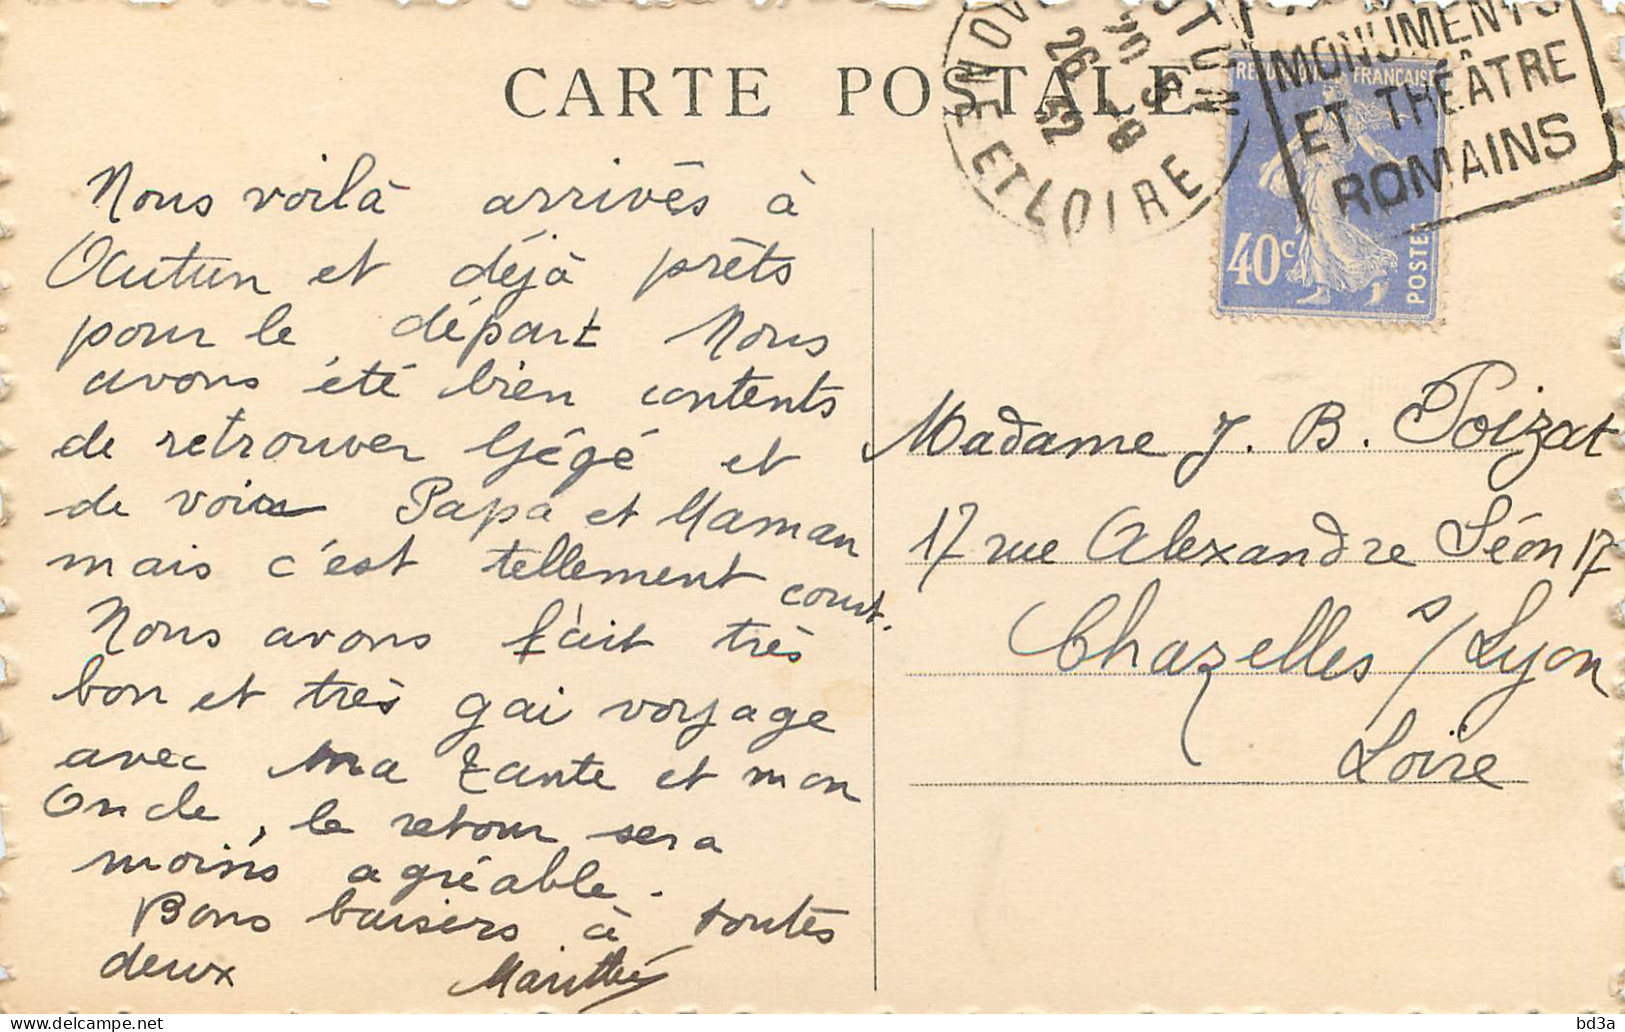 CARTE POSTALE
AUTUN
SAONE ET LOIRE
20 S
26 -8
32
MONUMENTS
ET THÉÂTRE
ROMAINS
FRANÇAISE
40c
POSTES
Nous voilà arrivés à
Autun et déjà prêts
pour le départ Nous
avons été bien contents
de retrouver Gégé et
de voir Papa et Maman
mais c'est tellement court.
Nous avons fait très
bon et très gai voyage
avec ma tante et mon
Oncle, le retour sera
moins agréable.
Bons baisers à toutes
deux
Madame J. B. Poizat
17 rue Alexandre Séon 17
Chazelles s/Lyon
Loire
bd3a